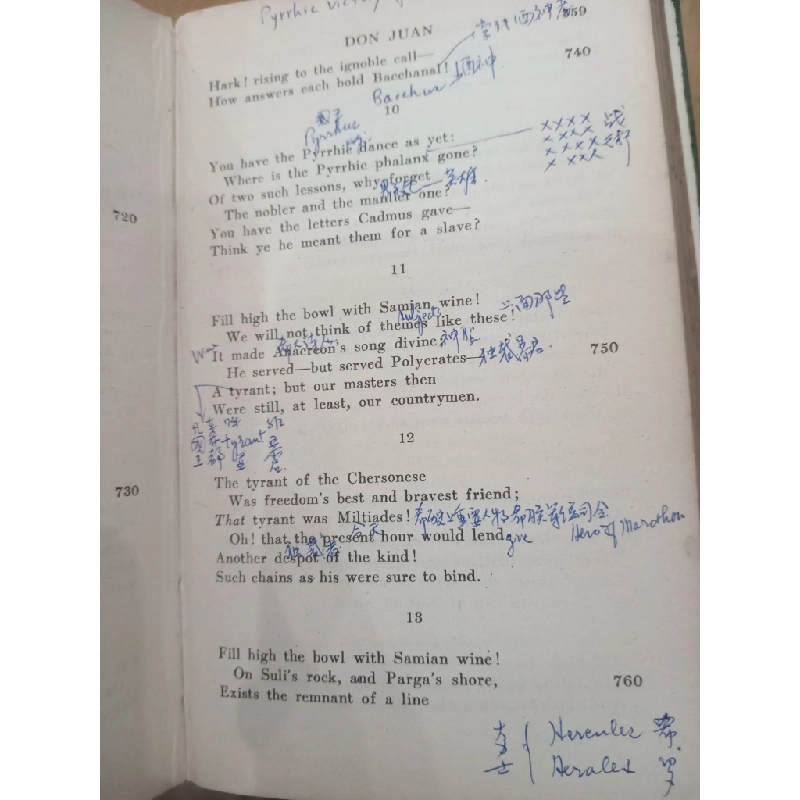 Pyrrhic victory
DON JUAN
559
Hark! rising to the ignoble call—
How answers each bold Bacchanal!
740
Bacchus 酒神
10
Pyrrhus
You have the Pyrrhic dance as yet:
Where is the Pyrrhic phalanx gone?
××××
××××
××××
× ×××
Of two such lessons, why forget
The nobler and the manlier one?
英雄
You have the letters Cadmus gave—
Think ye he meant them for a slave?
720
11
Fill high the bowl with Samian wine!
subjects
We will not think of themes like these!
It made Anacreon's song divine;
He served—but served Polycrates—
独裁暴君
750
A tyrant; but our masters then
Were still, at least, our countrymen.
tyrant
12
The tyrant of the Chersonese
Was freedom's best and bravest friend;
730
That tyrant was Miltiades!
今天
Oh! that the present hour would lend
give
Hero of Marathon
独裁者
Another despot of the kind!
Such chains as his were sure to bind.
13
Fill high the bowl with Samian wine!
On Suli's rock, and Parga's shore,
760
Exists the remnant of a line
大力士 { Hercules 希
Herales 罗